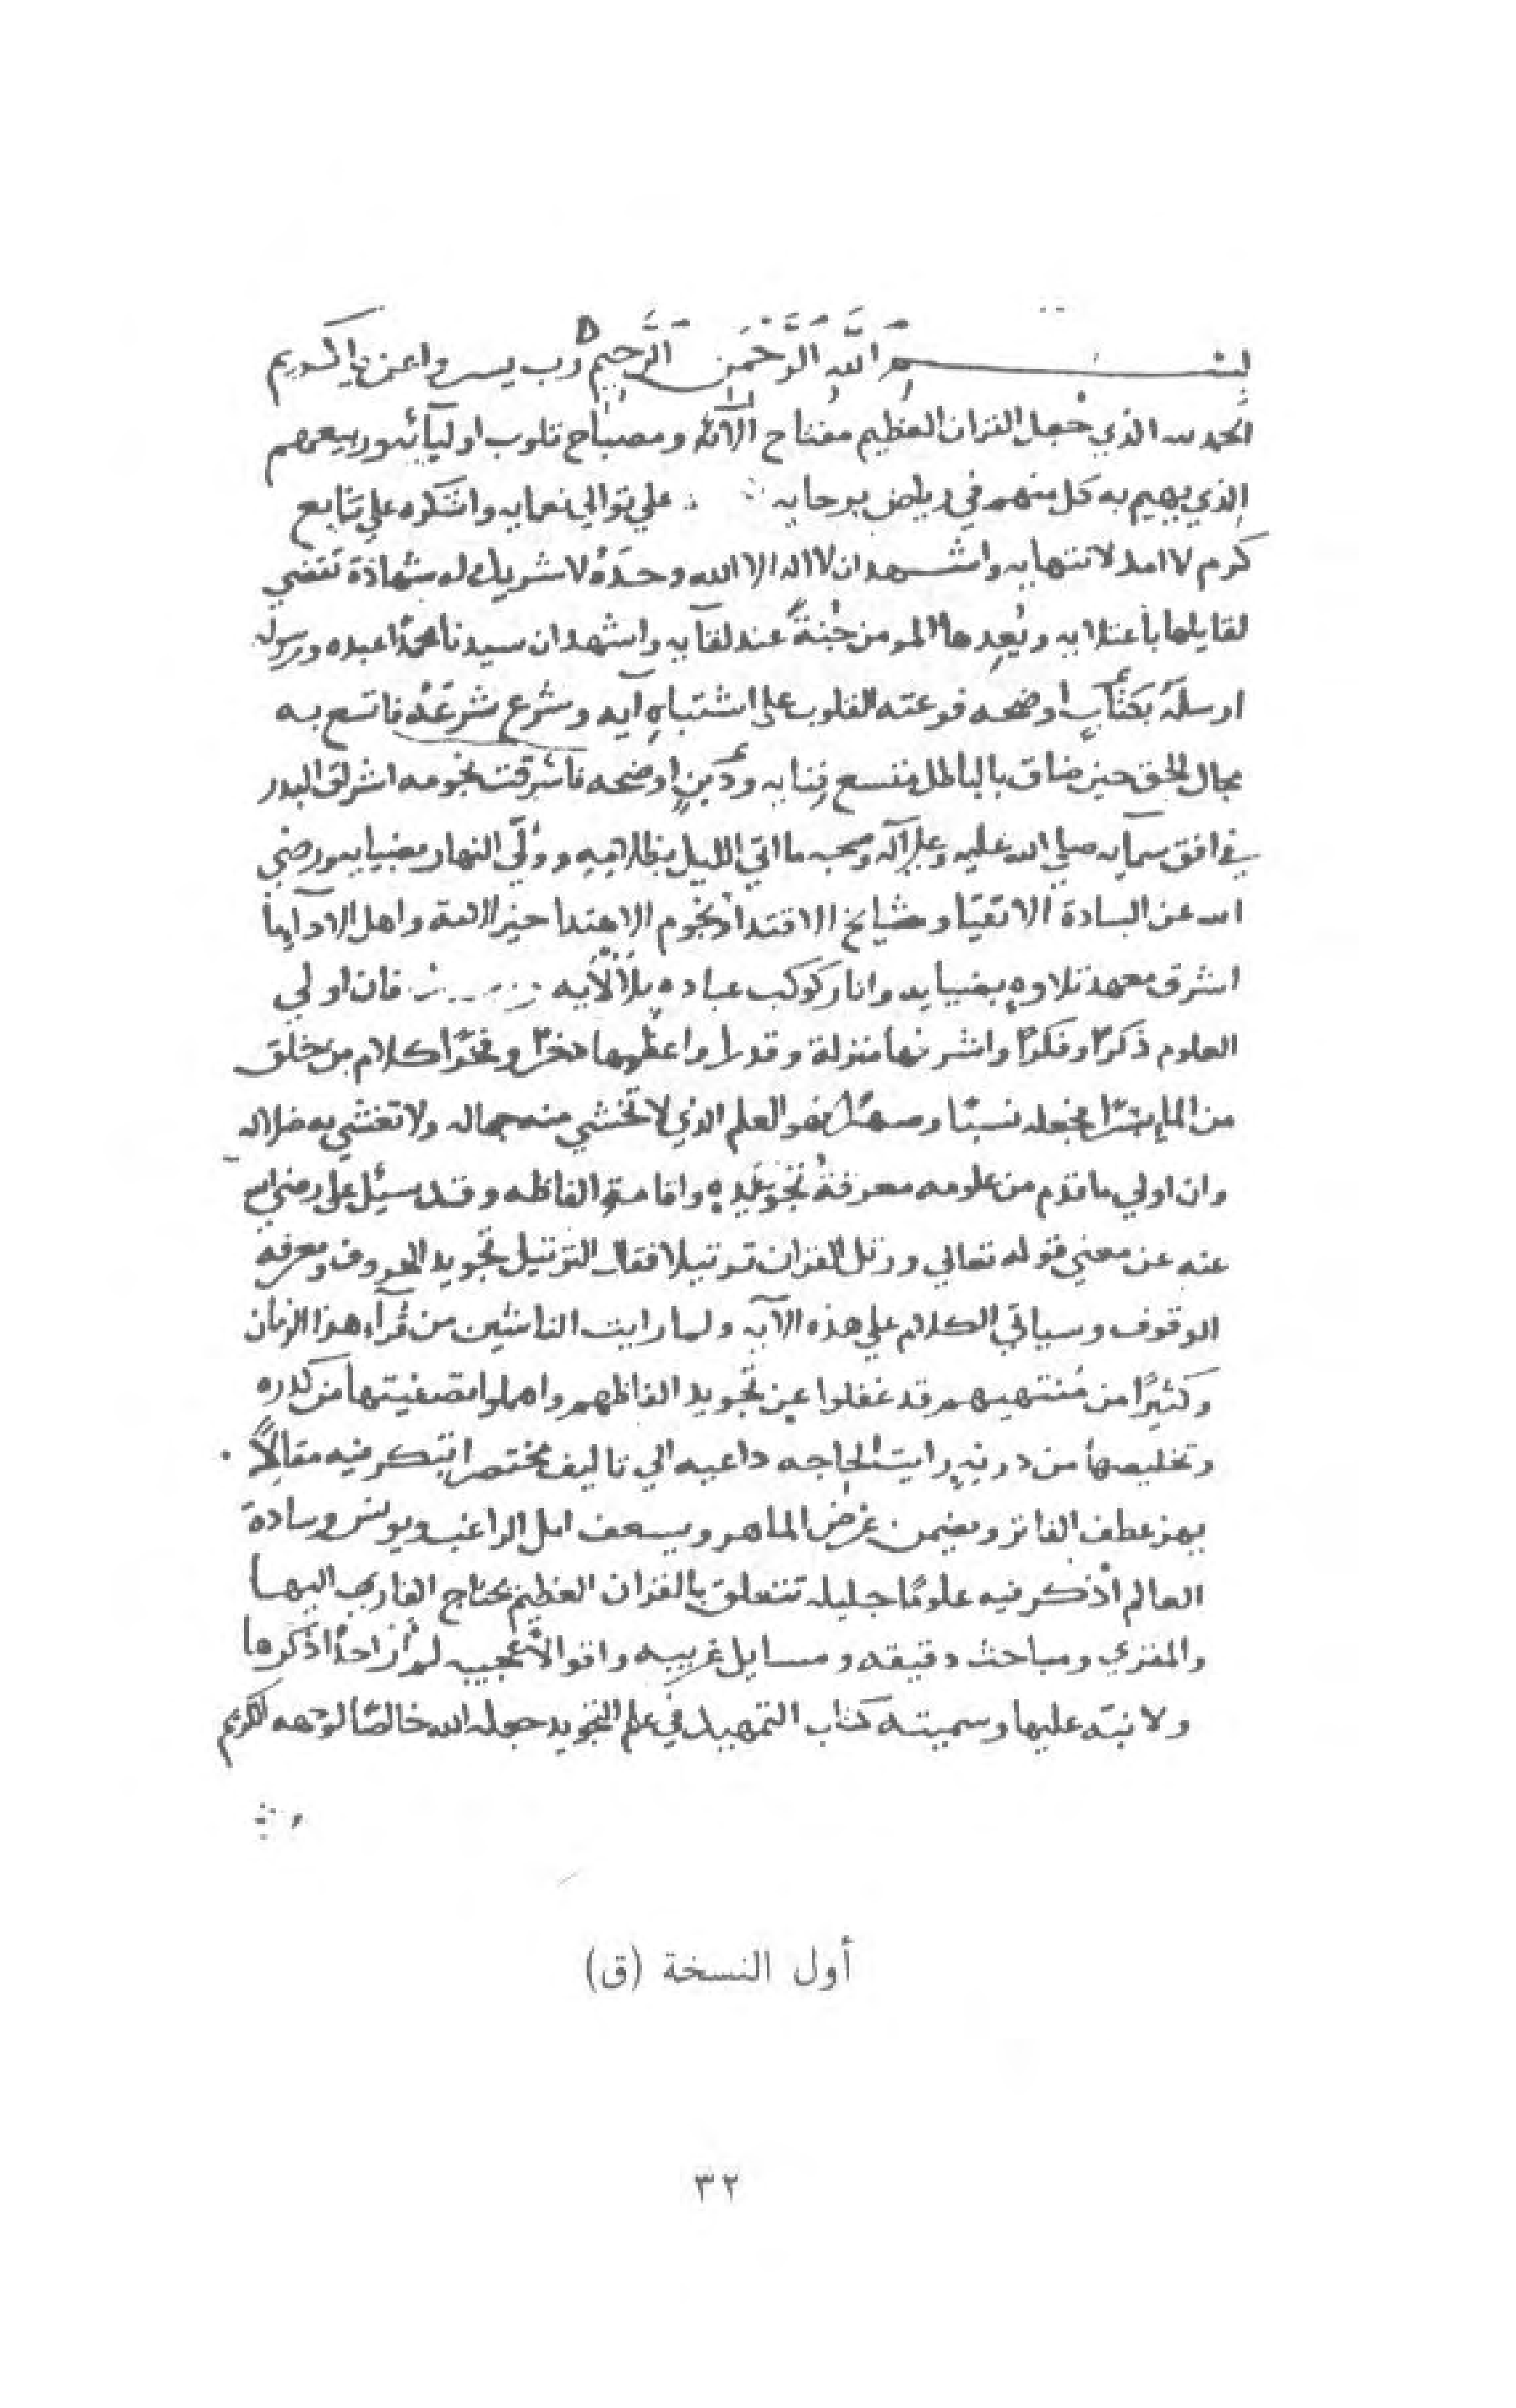 بسم الله الرحمن الرحيم رب يسر واعن يا كريم
الحمد لله الذي جعل القران العظيم مفتاح الآئه ومصباح قلوب اوليآئه وربيعهم
الذي يهيم به كل منهم في رياض برحايه علي توالي نعمايه واشكره علي تتابع
كرم لا امد لانتهايه واشهد ان لا اله الا الله وحده لا شريك له شهادة تقضي
لقايلها باعتلايه ويعدها المومن جنة عند لقآيه واشهد ان سيدنا محمدا عبده ورسوله
ارسله بكتاب اوضحه فوعته القلوب على اشتباه آيه وشرع شرعه فاتسع به
مجال الحق حين ضاق بالباطل متسع فنايه ودين اوضحه فاشرقت نجومه اشراق البدر
في افق سمآيه صلي الله عليه وعلى آله وصحبه ما اتي الليل بظلامه وولّي النهار بضيايه ورضي
الله عن السادة الاتقيا ومشايخ الاقتدا ونجوم الاهتدا خيز الامة واهل الادا
اشرق معهد تلاوه بضيايه وانار كوكب عباده بلألأيه فان اولي
العلوم ذكرًا وفكرًا واشرفها منزلة وقدرا واعظمها ذخرًا وفخرًا كلام من خلق
من الماء بشرًا فجعله نسبًا وصهرًا فهو العلم الذي لا تخشي منه جهاله ولا تغشي به ضلاله
وان اولي ما قدم من علومه معرفة تجويده واقامة الفاظه وقد سئل علي رضي الله
عنه عن معني قوله تعالي ورتل القران ترتيلا فقال الترتيل تجويد الحروف ومعرفة
الوقوف وسياتي الكلام علي هذه الآيه ولما رايت الناشئين من قرآء هذا الزمان
وكثيرًا من منتهيهم قد غفلوا عن تجويد الفاظهم واهملوا تصفيتها من كدره
وتخليصها من درنه رايت الحاجه داعيه الي تاليف مختصر ابتكر فيه مقالًا
يهز عطف الفاتر ويضمن غرض الماهر ويسعف امل الراغب ويونس وسادة
العالم اذكر فيه علومًا جليله تتعلق بالقران العظيم يحتاج القارى اليها
والمقري ومباحث دقيقه ومسايل غريبه واقوالا عجيبه لم أر احدًا ذكرها
ولا نبّه عليها وسميته كتاب التمهيد في علم التجويد جعله الله خالصًا لوجهه الكريم
أول النسخة (ق)
٣٢